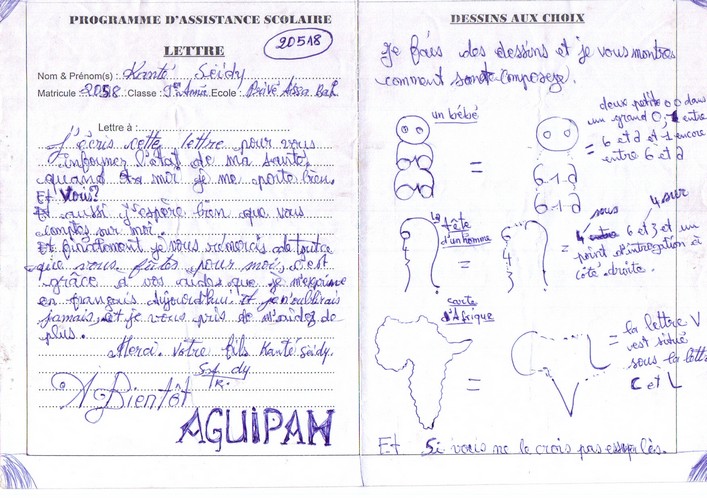 PROGRAMME D'ASSISTANCE SCOLAIRE
20518
LETTRE
Nom & Prénom(s) : Kanté Seidy
Matricule 20518 Classe : Année Ecole : Privé Assa Bah
Lettre à :
J'écris cette lettre pour vous
informer l'état de ma santé
quand à moi je me porte bien.
Et Vous?
Et aussi j'espère bien que vous
comptes sur moi.
Et je vous remercis de toutce
que vous faites pour moi, c'est
grâce à vos aides que je m'exprime
en français aujourd'hui. Et je n'oublirais
jamais, et je vous pris de m'aidez de
plus.
Merci. Votre fils Kanté Seidy.
A Bientôt
AGUIPAH
DESSINS AUX CHOIX
Je fais des dessins et je vous montres
comment sont composeze.
un bébé
=
6 1 2
6 1 2
deux petite 0 0 dans
un grand 0, 1 entre
= 6 et 2 et 1 encore
entre 6 et 2
la tête
d'un homme
=
sous 4 sur
= 4 6 et 3 et un
point d'intéregation à
côté droite.
carte
d'Afrique
=
= la lettre V
est situé
sous la lettr
C et L
Et Si vous ne le crois pas essayer lès.